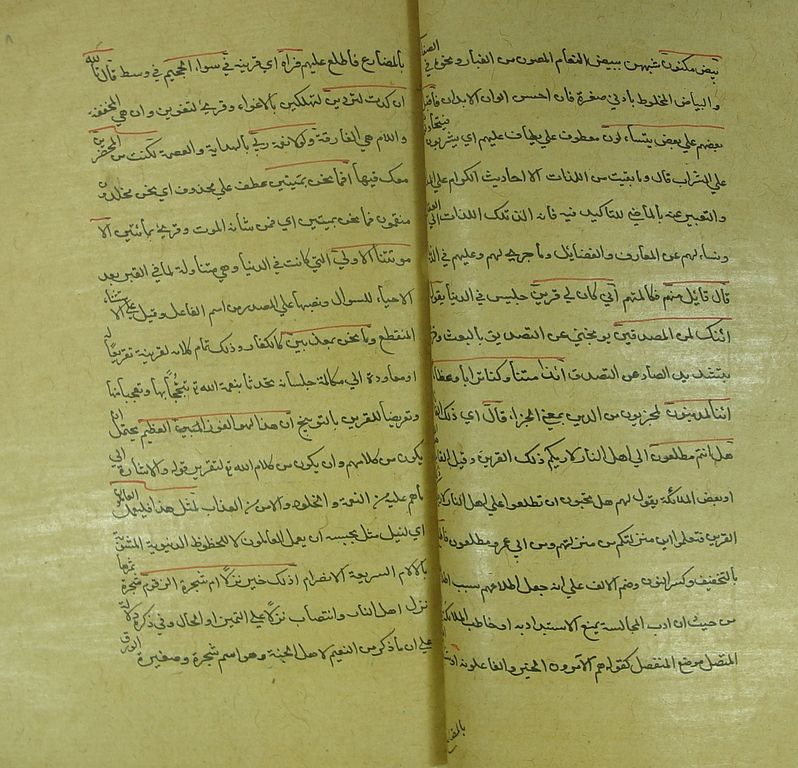 بيض مكنون شبههن ببيض النعام المصون من الغبار ونحوه في الصفا
والبياض المخلوط بادني صفرة فان احسن الوان الابدان فاقبل
بعضهم علي بعض يتساءلون معطوف علي يطاف عليهم اي يشربون فيتحادثون
علي الشراب قال وما بقيت من اللذات الا احاديث الكرام علي
والتعبير عنه بالماضي للتاكيد فيه فانه الذ تلك اللذات الي
وتساءلهم عن المعارف والفضايل وما جري لهم وعليهم في
قال قائل منهم في مكالمتهم اني كان لي قرين جليس في الدنيا يقول
ائنك لمن المصدقين يوبخني علي التصديق بالبعث وقرئ
بتشديد الصاد من التصدق ائذا متنا وكنا ترابا وعظاما
ائنا لمدينون لمجزيون من الدين بمعني الجزاء قال اي ذلك
هل انتم مطلعون الي اهل النار لاريكم ذلك القرين وقيل القائل
او بعض الملائكة يقول لهم هل تحبون ان تطلعوا علي اهل النار لاريكم
القرين فتعلموا اين منزلتكم من منزلتهم وعن ابي عمرو مطلعون
بالتخفيف وكسر النون وضم الالف علي انه جعل اطلاعهم سبب
من حيث ان ادب المجالسة يمنع الاستبداد به او خاطب الملائكة
المتصل موضع المنفصل كقوله هم الآمرون الخير والفاعلونه
بالمضارع فاطلع عليهم فرآه اي قرينه في سواء الجحيم في وسطه قال تالله
ان كدت لتردين لتهلكني بالاغواء وقرئ لتغوين وان هي المخففة
واللام هي الفارقة ولولا نعمة ربي بالهداية والعصمة لكنت من المحضرين
معك فيها افما نحن بميتين عطف علي محذوف اي نحن مخلدون
منعمون فما نحن بميتين اي فمن شانه الموت وقرئ بمائتين الا
موتتنا الاولي التي كانت في الدنيا وهي متناولة لما في القبر بعد
الاحياء للسوال ونصبها علي المصدر من اسم الفاعل وقيل علي الاستثناء
المنقطع وما نحن بمعذبين كالكفار وذلك تمام كلامه لقرينه تقريعا له
او معاودة الي مكالمة جلسائه تحدثا بنعمة الله تع تبجحا بها وتعجبا منها
وتعريضا للقرين بالتوبيخ ان هذا لهو الفوز العظيم يحتمل ان
يكون من كلامهم وان يكون من كلام الله تع لتقرير قوله والاشارة الي
ما هم عليه من النعمة والخلود والامن من العذاب لمثل هذا فليعمل العاملون
اي لنيل مثل يجب ان يعمل العاملون لا للحظوظ الدنيوية المشوبة
بالالام السريعة الانصرام اذلك خير نزلا ام شجرة الزقوم شجرة ثمرها
نزل اهل النار وانتصاب نزلا علي التمييز او الحال وفي ذكره دلالة
علي ان ما ذكر من النعيم لاهل الجنة وهو اسم شجرة صغيرة الورق